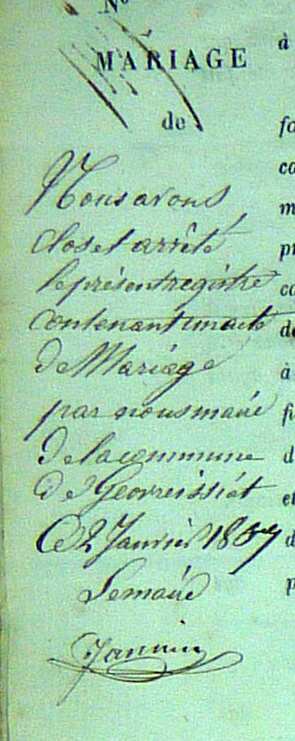 No
MARIAGE
à
de
Nous avons
clos et arrêté
le présent registre
contenant un acte
de Mariage
par nous maire
de la commune
de Géovreissiat
Ce 2 Janvier 1867
Le maire